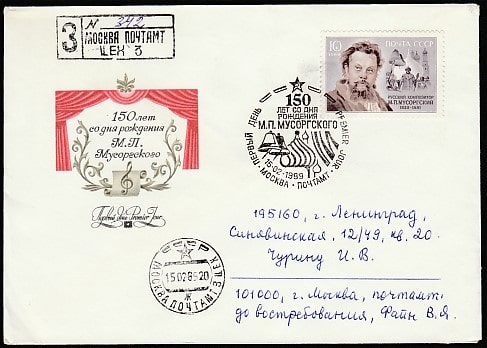 N 342
З МОСКВА ПОЧТАМТ
ЦЕХ 3
10
ПОЧТА СССР
РУССКИЙ КОМПОЗИТОР
М.П.МУСОРГСКИЙ
1839-1881
150 лет
со дня рождения
М.П.
Мусоргского
Первый день Premier Jour
150
ЛЕТ СО ДНЯ
РОЖДЕНИЯ
М.П.МУСОРГСКОГО
ПЕРВЫЙ ДЕНЬ PREMIER JOUR
15-02-1989
МОСКВА - ПОЧТАМТ
195160, г. Ленинград,
Синявинская, 12/49, кв. 20.
Чурину И.В.
СССР
15 02 89 20
МОСКВА ПОЧТАМТ
Ж
101000, г. Москва, почтамт.
до востребования, Файн В.Я.